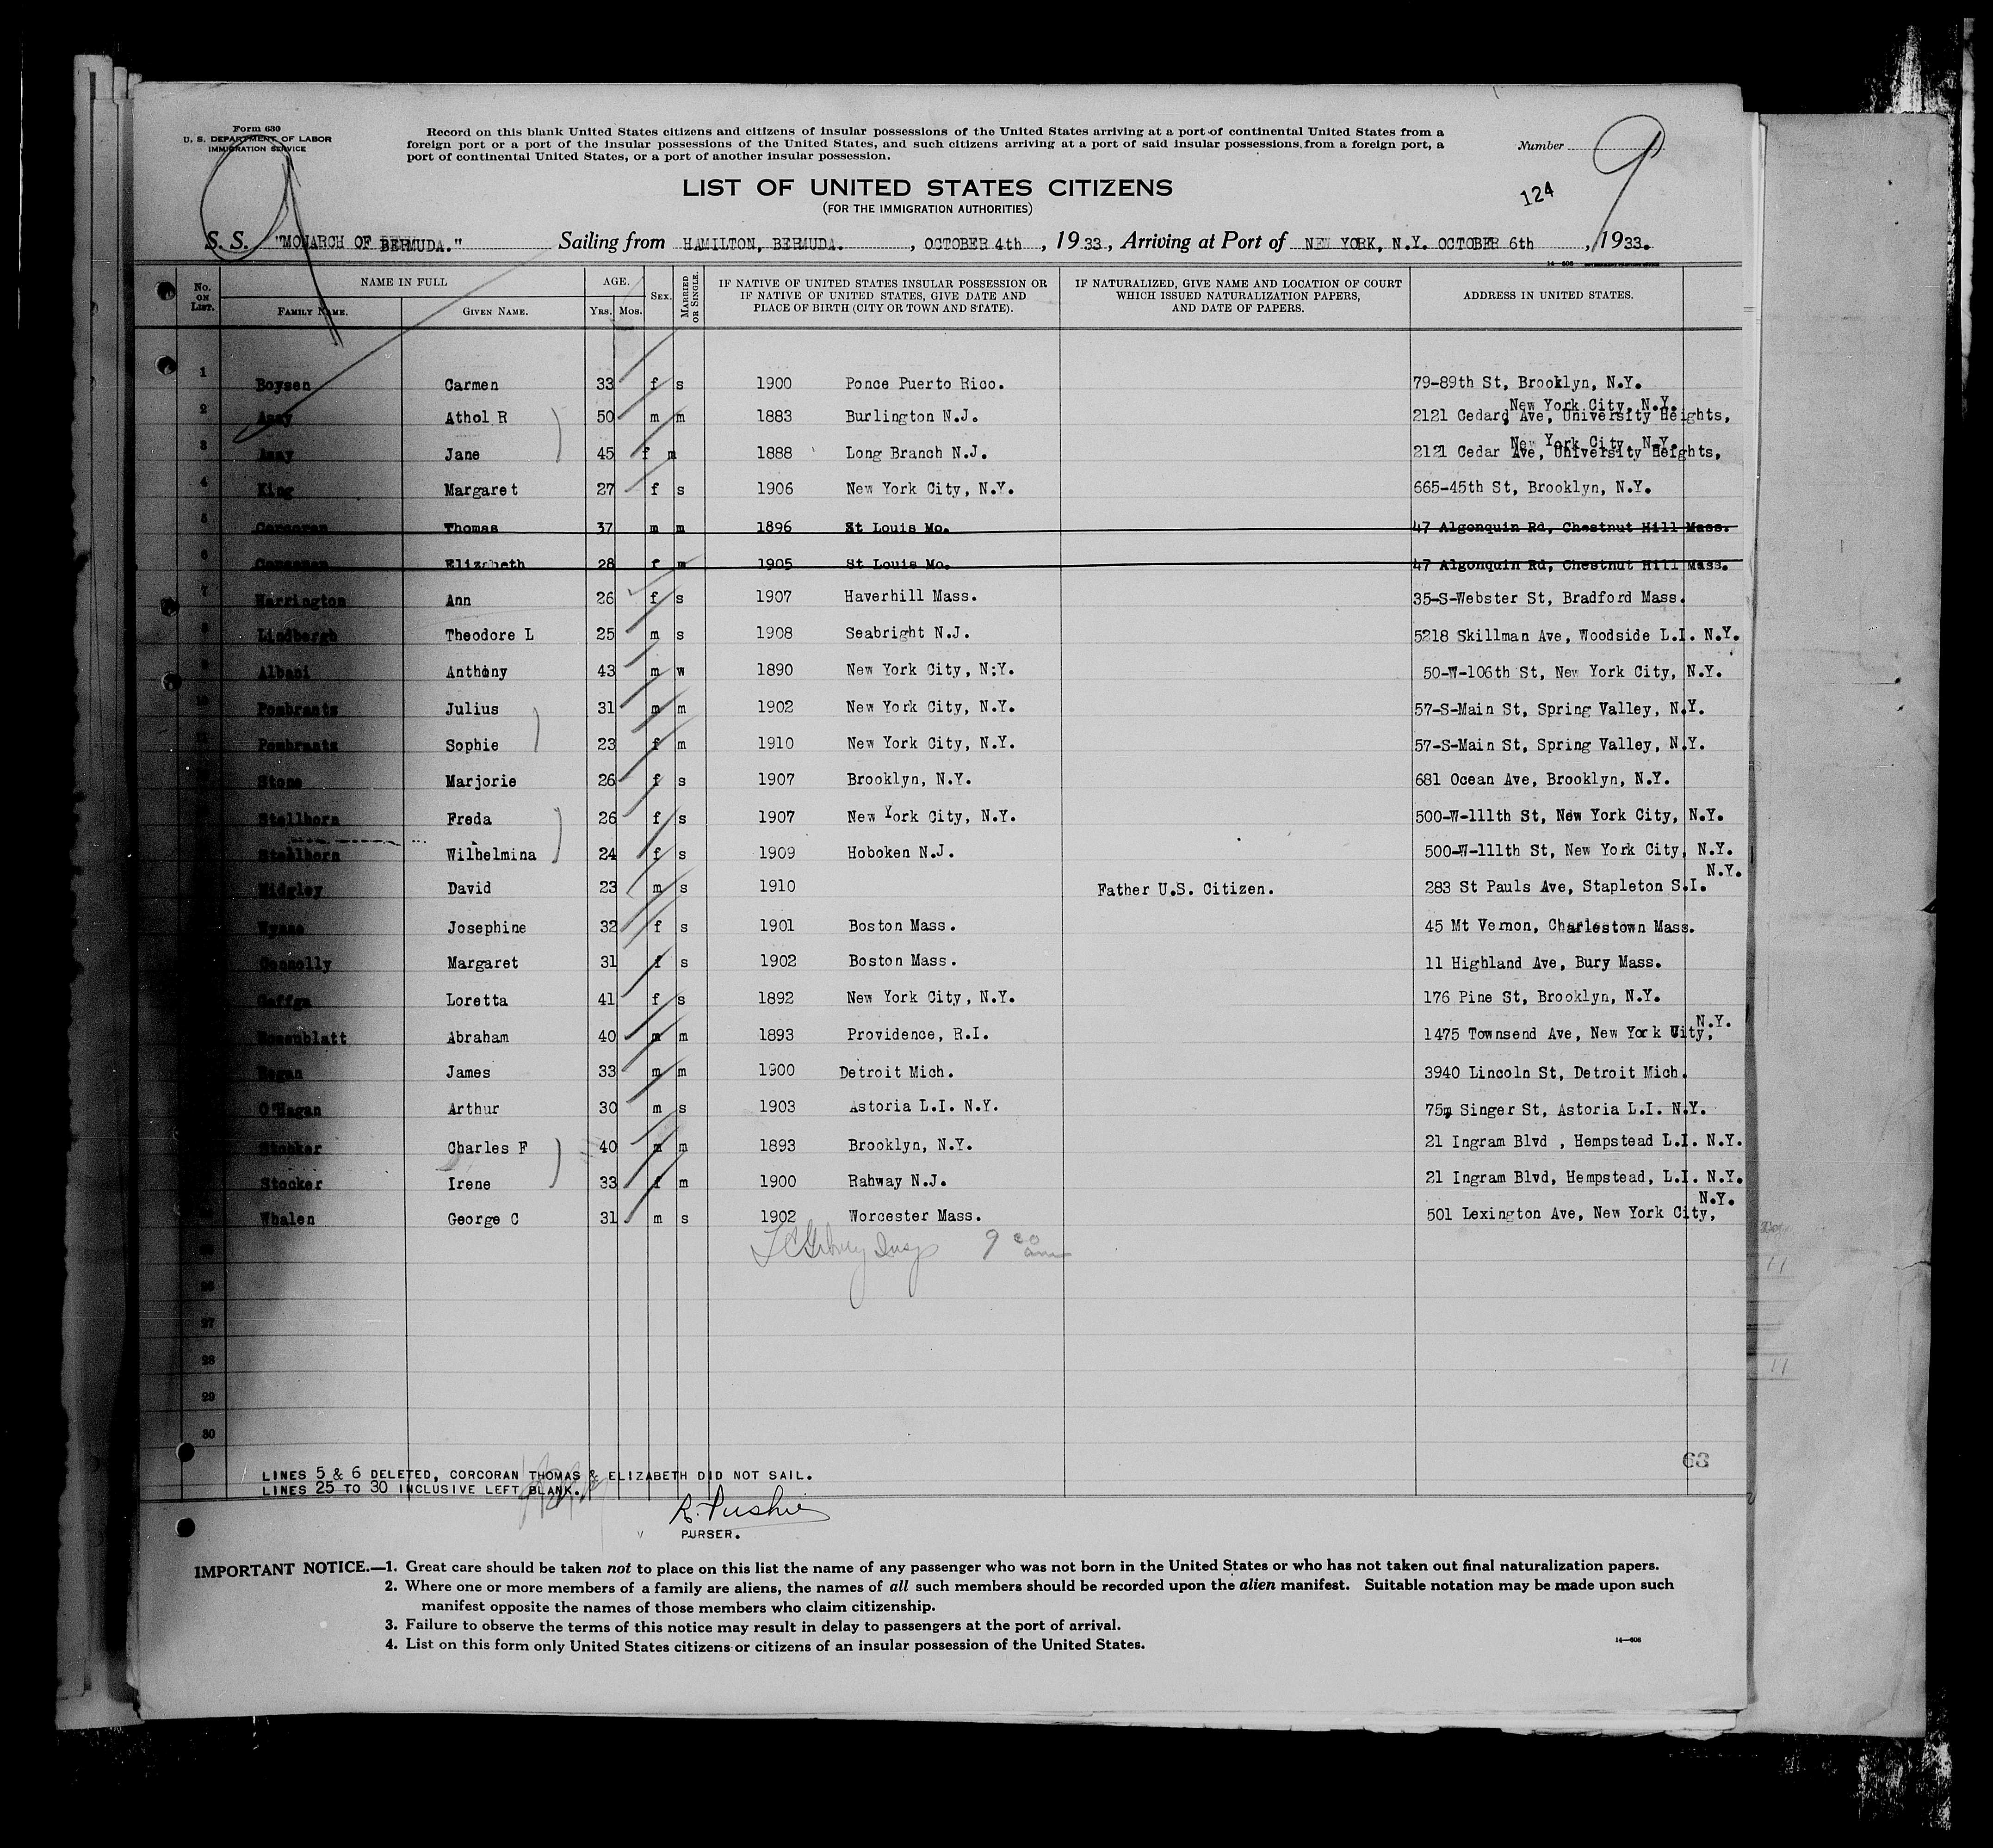 Form 630
U. S. DEPARTMENT OF LABOR
IMMIGRATION SERVICE
Record on this blank United States citizens and citizens of insular possessions of the United States arriving at a port of continental United States from a
foreign port or a port of the insular possessions of the United States, and such citizens arriving at a port of said insular possessions from a foreign port, a
port of continental United States, or a port of another insular possession.
Number 9
124
LIST OF UNITED STATES CITIZENS
(FOR THE IMMIGRATION AUTHORITIES)
S. S. "MONARCH OF BERMUDA." Sailing from HAMILTON, BERMUDA. , OCTOBER 4th , 1933, Arriving at Port of NEW YORK, N.Y. OCTOBER 6th , 1933.
No. ON LIST. NAME IN FULL FAMILY NAME. GIVEN NAME. AGE. Yrs. Mos. SEX. MARRIED OR SINGLE. IF NATIVE OF UNITED STATES INSULAR POSSESSION OR IF NATIVE OF UNITED STATES, GIVE DATE AND PLACE OF BIRTH (CITY OR TOWN AND STATE). IF NATURALIZED, GIVE NAME AND LOCATION OF COURT WHICH ISSUED NATURALIZATION PAPERS, AND DATE OF PAPERS. ADDRESS IN UNITED STATES.
1 Boysen Carmen 33 f s 1900 Ponce Puerto Rico. 79-89th St, Brooklyn, N.Y.
2 Athol R 50 m m 1883 Burlington N.J. 2121 Cedar Ave, University Heights, New York City, N.Y.
3 Jane 45 f m 1888 Long Branch N.J. 2121 Cedar Ave, University Heights, New York City, N.Y.
4 King Margaret 27 f s 1906 New York City, N.Y. 665-45th St, Brooklyn, N.Y.
5 Corcoran Thomas 37 m m 1896 St Louis Mo. 47 Algonquin Rd, Chestnut Hill Mass.
6 Elizabeth 28 f m 1905 St Louis Mo. 47 Algonquin Rd, Chestnut Hill Mass.
7 Harrington Ann 26 f s 1907 Haverhill Mass. 35-S-Webster St, Bradford Mass.
8 Lindbergh Theodore L 25 m s 1908 Seabright N.J. 5218 Skillman Ave, Woodside L.I. N.Y.
9 Albani Anthony 43 m w 1890 New York City, N.Y. 50-W-106th St, New York City, N.Y.
10 Pombrants Julius 31 m m 1902 New York City, N.Y. 57-S-Main St, Spring Valley, N.Y.
Pombrants Sophie 23 f m 1910 New York City, N.Y. 57-S-Main St, Spring Valley, N.Y.
Stone Marjorie 26 f s 1907 Brooklyn, N.Y. 681 Ocean Ave, Brooklyn, N.Y.
Stallhorn Freda 26 f s 1907 New York City, N.Y. 500-W-111th St, New York City, N.Y.
Stallhorn Wilhelmina 24 f s 1909 Hoboken N.J. 500-W-111th St, New York City, N.Y.
Midgley David 23 m s 1910 Father U.S. Citizen. 283 St Pauls Ave, Stapleton S.I. N.Y.
Josephine 32 f s 1901 Boston Mass. 45 Mt Vernon, Charlestown Mass.
Connolly Margaret 31 f s 1902 Boston Mass. 11 Highland Ave, Bury Mass.
Loretta 41 f s 1892 New York City, N.Y. 176 Pine St, Brooklyn, N.Y.
Rosenblatt Abraham 40 m m 1893 Providence, R.I. 1475 Townsend Ave, New York City, N.Y.
James 33 m m 1900 Detroit Mich. 3940 Lincoln St, Detroit Mich.
O'Hagan Arthur 30 m s 1903 Astoria L.I. N.Y. 75 Singer St, Astoria L.I. N.Y.
Stocker Charles F 40 m m 1893 Brooklyn, N.Y. 21 Ingram Blvd , Hempstead L.I. N.Y.
Stocker Irene 33 f m 1900 Rahway N.J. 21 Ingram Blvd, Hempstead, L.I. N.Y.
Whalen George C 31 m s 1902 Worcester Mass. 501 Lexington Ave, New York City, N.Y.
25 Insp 9 00 am
26
27
28
29
30
63
LINES 5 & 6 DELETED, CORCORAN THOMAS & ELIZABETH DID NOT SAIL.
LINES 25 TO 30 INCLUSIVE LEFT BLANK.
PURSER.
IMPORTANT NOTICE.—1. Great care should be taken not to place on this list the name of any passenger who was not born in the United States or who has not taken out final naturalization papers.
2. Where one or more members of a family are aliens, the names of all such members should be recorded upon the alien manifest. Suitable notation may be made upon such
manifest opposite the names of those members who claim citizenship.
3. Failure to observe the terms of this notice may result in delay to passengers at the port of arrival.
4. List on this form only United States citizens or citizens of an insular possession of the United States.
14—608